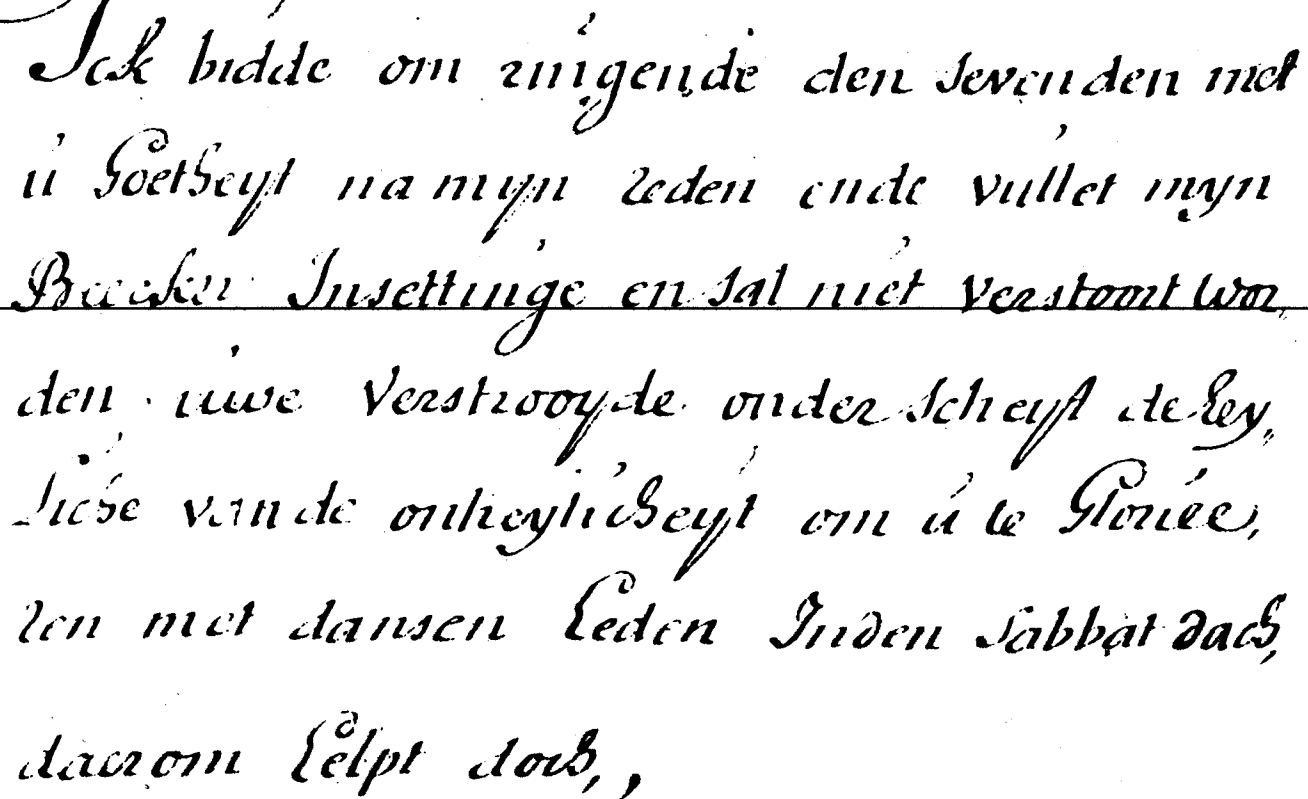 Ick bidde om zingende den sevenden met
u Goetheyt na myn reden ende vullet myn
Beecker Insettinge en sal niet verstoort wor,
den uwe Verstrooyde onderscheyt de hey,
liche van de onheylicheyt om u te Gloriée,
ren met dansen heden Inden Sabbat dach,
daerom helpt doch,,